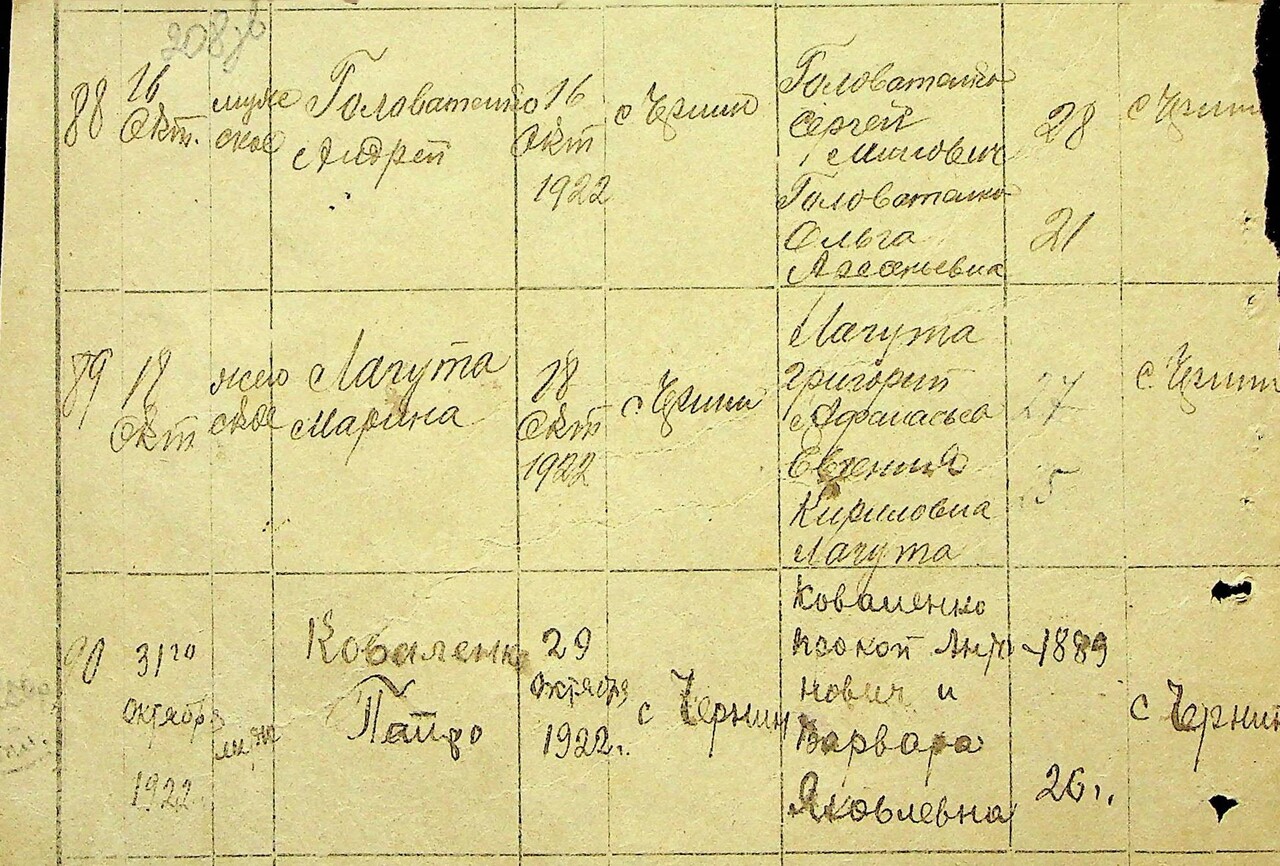 208
88
16
Окт.
муже
ское
Головатенко
Андрей
16
Окт
1922
с Чернин
Головатенко
Сергей
Минович
Головатенко
Ольга
28
21
89
18
Окт
жен
ское
Лагута
Марина
18
Окт
1922
с Чернин
Лагута
Григорий
Афанасьев
Евгения
Кириловна
Лагута
27
90
31го
октября
1922
Коваленко
Петро
29
октября
1922г.
с Чернин
Коваленко
Прокоп Анто
нович и
Варвара
Яковлевна
1889
26 г.
с Чернин